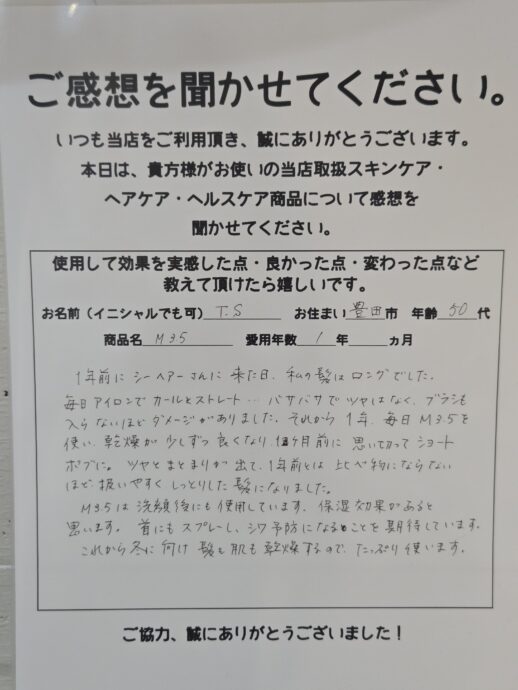 ご感想を聞かせてください。
いつも当店をご利用頂き、誠にありがとうございます。
本日は、貴方様がお使いの当店取扱スキンケア・
ヘアケア・ヘルスケア商品について感想を
聞かせてください。
使用して効果を実感した点・良かった点・変わった点など
教えて頂けたら嬉しいです。
お名前(イニシャルでも可) T.S お住まい 豊田市 年齢 50代
商品名 M3.5 愛用年数 1年 ヵ月
1年前に シーヘアーさんに 来た日、私の髪は ロングでした。
毎日アイロンで カールとストレート… バサバサで ツヤはなく、ブラシも
入らないほど ダメージがありました。それから 1年、毎日 M3.5を
使い、乾燥が 少しずつ 良くなり、1ヶ月前に 思い切って ショート
ボブに。ツヤと まとまりが 出て、1年前とは 比べ物にならない
ほど 扱いやすく しっとりした 髪になりました。
M3.5は 洗顔後にも 使用しています。保湿効果があると
思います。首にも スプレーし、シワ予防になることを 期待しています。
これから冬に向け 髪も 肌も 乾燥するので、たっぷり 使います。
ご協力、誠にありがとうございました！